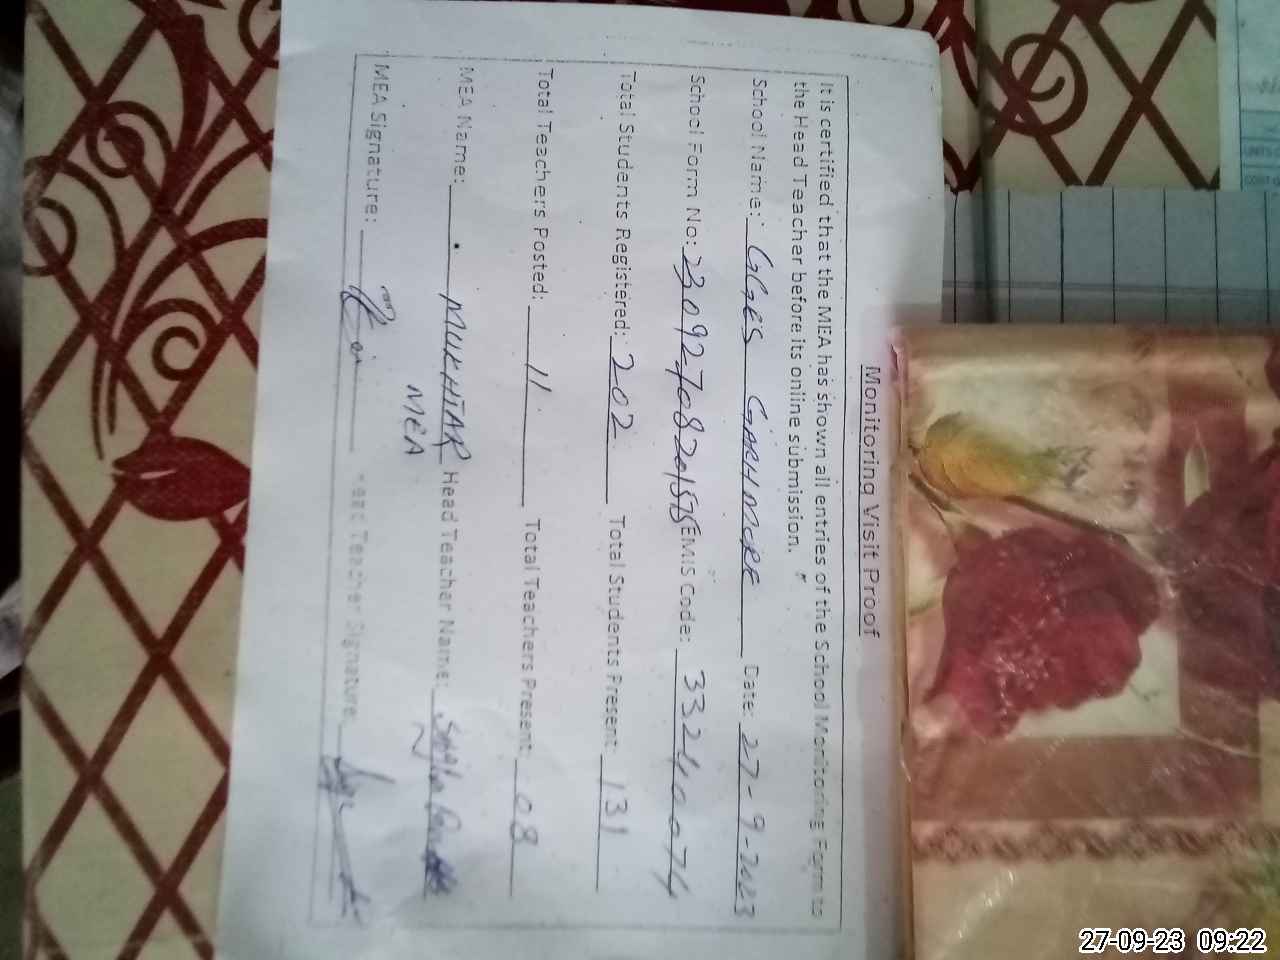 Monitoring Visit Proof
It is certified that the MEA has shown all entries of the School Monitoring Form to
the Head Teacher before its online submission.
School Name: GGES GARH MORE Date: 27-9-2023
School Form No: 23092708201575 EMIS Code: 33240074
Total Students Registered: 202 Total Students Present 131
Total Teachers Posted: 11 Total Teachers Present 08
MEA Name: MUKHTAR Head Teacher Name:
MEA
MEA Signature: Head Teacher Signature:
UNITS
COST
27-09-23 09:22